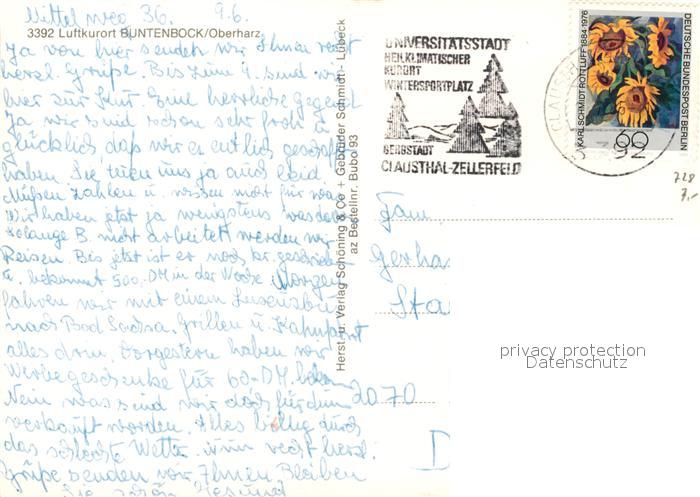 Mittelweg 36. 9.6.
3392 Luftkurort BUNTENBOCK/Oberharz
Ja von hier senden wir Ihnen recht
herzl. Grüße. Bis zum 4. sind wir
hier zur Kur. Eine herrliche Gegend
Ja wir sind schon sehr froh u.
glücklich daß wir es entlich geschafft
haben. Sie tuen uns ja auch leid
Müßen zahlen u. wissen nicht für was
Wir haben jetzt ja wenigstens was davon
solange B. nicht arbeitet werden wir
Reisen. Bis jetzt ist er noch kr. geschrieben
u. bekommt 500,-DM in der Woche Morgen
fahren wir mit einem Luxusbus
nach Bad Sachsa. Grillen u. Kahnfahrt
alles drin. Vorgestern haben wir
Werbegeschenke für 60-DM. bekom
Nein was sind wir doch für dumm
verkauft worden. Alles billig durch
das schlechte Wetter. Nun recht herzl.
Grüße senden wir Ihnen Bleiben
Sie schön Gesund
Herst. u. Verlag Schöning & Co + Gebrüder Schmidt - Lübeck
az Bestellnr. Bubo 93
UNIVERSITÄTSSTADT
HEILKLIMATISCHER
KURORT
WINTERSPORTPLATZ
BERGSTADT
CLAUSTHAL-ZELLERFELD
KARL SCHMIDT-ROTTLUFF 1884-1976
DEUTSCHE BUNDESPOST BERLIN
60
728
7,-
Fam.
Gerha
Sta
2070
privacy protection
Datenschutz